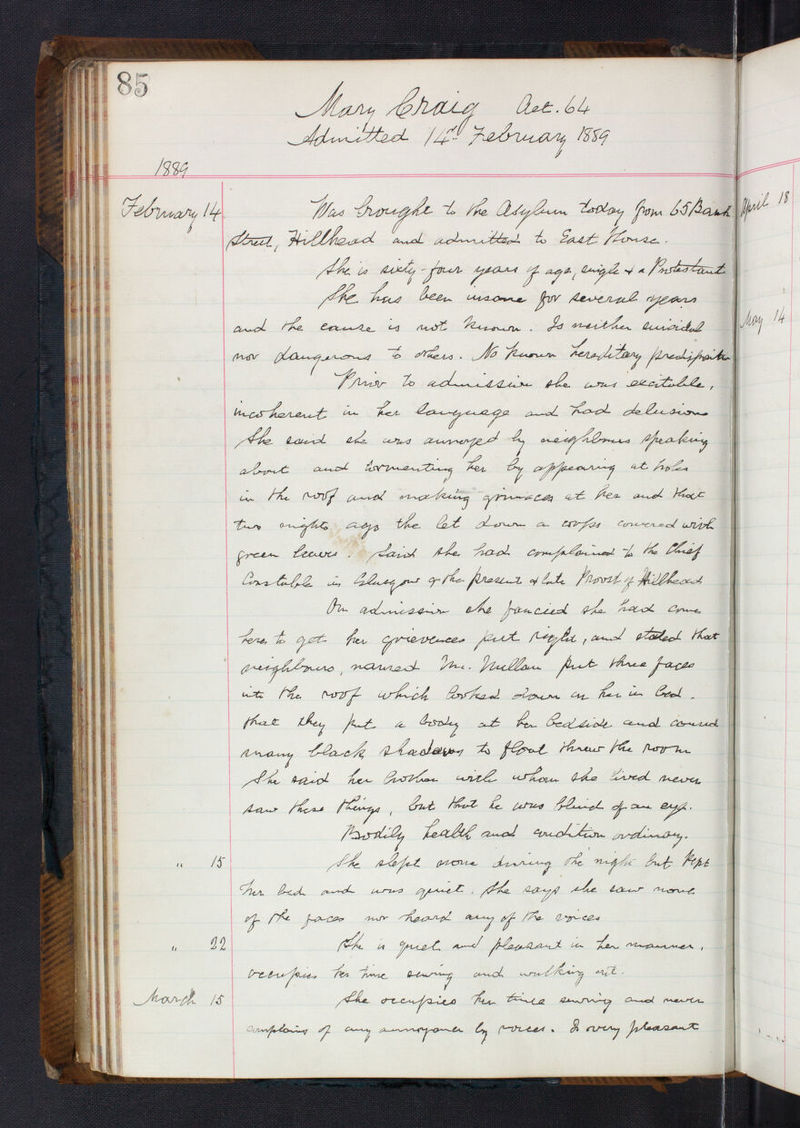 85
Mary Craig Aet. 64
Admitted 14th February 1889
1889
February 14 Was brought to the Asylum today from 65 Bank
Street, Hillhead and admitted to East House.
She is sixty-four years of age, single & a Protestant
She has been insane for several years
and the cause is not known. Is neither suicidal
nor dangerous to others. No known hereditary predisposition
Prior to admission she was excitable,
incoherent in her language and had delusions
She said she was annoyed by neighbours speaking
about and tormenting her by appearing at holes
in the roof and making grimaces at her and that
two nights ago the let down a corpse covered with
green leaves. Said she had complained to the Chief
Constable in Glasgow & the present & late Provost of Hillhead
On admission she fancied she had come
here to get her grievences put right, and stated that
neighbours, named Mc. Millan put three faces
into the roof which looked down on her in bed.
that they put a body at her bedside and caused
many black shadows to float threw the room
She said her brother with whom she lived never
saw these things, but that he was blind of an eye.
Bodily health and condition ordinary.
" 15 She slept none during the night but kept
her bed and was quiet. She says she saw none
of the faces nor heard any of the voices
" 22 She is quiet and pleasant in her manner,
occupies her time sewing and walking out.
March 15 She occupies her time sewing and never
complains of any annoyance by voices. Is very pleasant
April 18
May 14